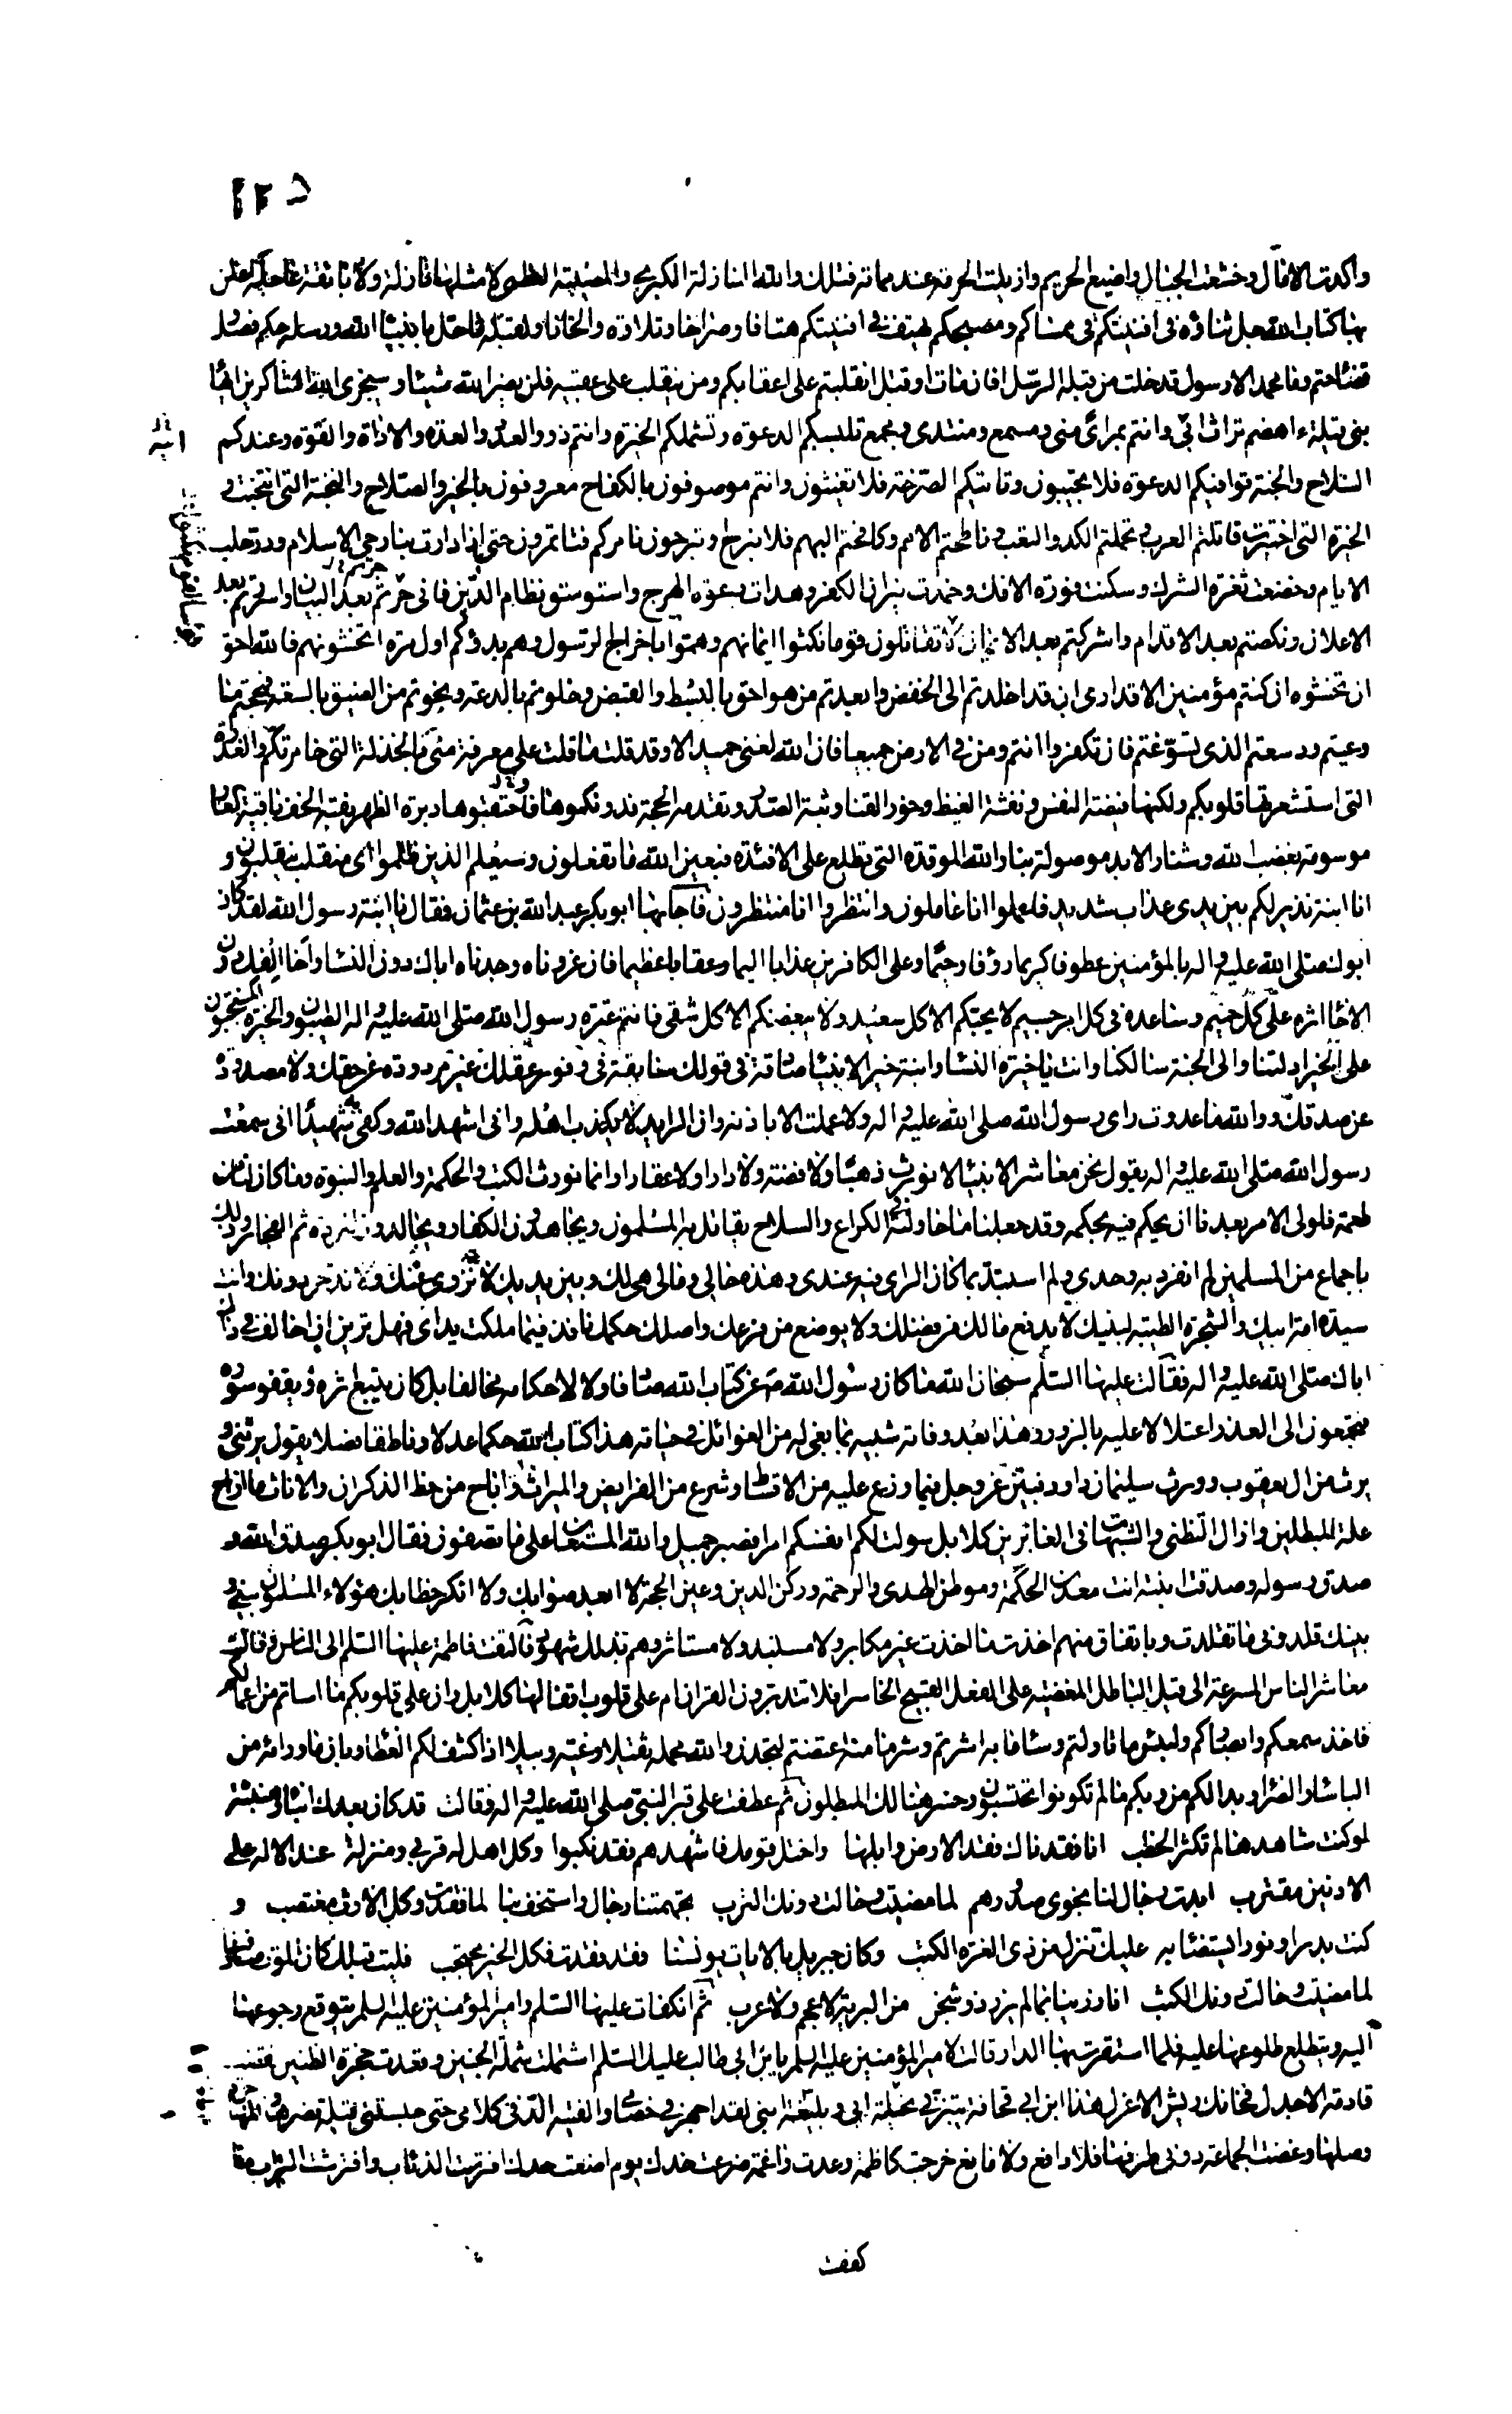 ١٢٥
واكدت الامال وخشعت الجبال واضيع الحريم وازيلت الحرمة عند مماته فتلك والله النازلة الكبرى والمصيبة العظمى لا مثلها نازلة ولا بائقة عاجلة اعلن
بها كتاب الله جل ثناؤه فى افنيتكم فى ممساكم ومصبحكم يهتف فى افنيتكم هتافا وصراخا وتلاوة والحانا ولقبله ما حل بانبياء الله ورسله حكم فصل و
قضاء حتم وما محمد الا رسول قد خلت من قبله الرسل افان مات او قتل انقلبتم على اعقابكم ومن ينقلب على عقبيه فلن يضر الله شيئا وسيجزى الله الشاكرين ايها
بنى قيلة ءاهضم تراث ابى وانتم بمراى منى ومسمع ومنتدى ومجمع تلبسكم الدعوة وتشملكم الخبرة وانتم ذوو العدد والعدة والاداة والقوة وعندكم
السلاح والجنة توافيكم الدعوة فلا تجيبون وتاتيكم الصرخة فلا تغيثون وانتم موصوفون بالكفاح معروفون بالخير والصلاح والنخبة التى انتخبت و
الخيرة التى اختيرت قاتلتم العرب وتحملتم الكد والتعب وناطحتم الامم وكافحتم البهم فلا نبرح وتبرحون نامركم فتاتمرون حتى اذا دارت بنا رحى الاسلام ودر حلب
الايام وخضعت ثغرة الشرك وسكنت فورة الافك وخمدت نيران الكفر وهدات دعوة الهرج واستوسق نظام الدين فانى حرتم بعد البيان واسررتم بعد
الاعلان ونكصتم بعد الاقدام واشركتم بعد الايمان الا تقاتلون قوما نكثوا ايمانهم وهموا باخراج الرسول وهم بدؤكم اول مرة اتخشونهم فالله احق
ان تخشوه ان كنتم مؤمنين الا قد ارى ان قد اخلدتم الى الخفض وابعدتم من هو احق بالبسط والقبض وخلوتم بالدعة ونجوتم من الضيق بالسعة فمججتم ما
وعيتم ودسعتم الذى تسوغتم فان تكفروا انتم ومن فى الارض جميعا فان الله لغنى حميد الا وقد قلت ما قلت على معرفة منى بالخذلة التى خامرتكم والغدرة
التى استشعرتها قلوبكم ولكنها فيضة النفس ونفثة الغيظ وخور القنا وبثة الصدر وتقدمة الحجة فدونكموها فاحتقبوها دبرة الظهر نقبة الخف باقية العار
موسومة بغضب الله وشنار الابد موصولة بنار الله الموقدة التى تطلع على الافئدة فبعين الله ما تفعلون وسيعلم الذين ظلموا اى منقلب ينقلبون و
انا ابنة نذير لكم بين يدى عذاب شديد فاعملوا انا عاملون وانتظروا انا منتظرون فاجابها ابو بكر عبد الله بن عثمان فقال يا ابنة رسول الله لقد كان
ابوك صلى الله عليه واله بالمؤمنين عطوفا كريما رؤفا رحيما وعلى الكافرين عذابا اليما وعقابا عظيما فان عزوناه وجدناه اباك دون النساء واخا الفك دون
الاخلا اثره على كل حميم وساعده فى كل امر جسيم لا يحبكم الا كل سعيد ولا يبغضكم الا كل شقى فانتم عترة رسول الله صلى الله عليه واله الطيبون والخيرة المنتجبون
على الخير ادلتنا والى الجنة مسالكنا وانت يا خيرة النساء وابنة خير الانبياء صادقة فى قولك سابقة فى وفور عقلك غير مردودة عن حقك ولا مصدودة
عن صدقك ووالله ما عدوت راى رسول الله صلى الله عليه واله ولا عملت الا باذنه وان الرايد لا يكذب اهله وانى اشهد الله وكفى به شهيدا انى سمعت
رسول الله صلى الله عليه واله يقول نحن معاشر الانبياء لا نورث ذهبا ولا فضة ولا دارا ولا عقارا وانما نورث الكتب والحكمة والعلم والنبوة وما كان لنا من
طعمة فلولى الامر بعدنا ان يحكم فيه بحكمه وقد جعلنا ما حاولته فى الكراع والسلاح يقاتل به المسلمون ويجاهدون الكفار ويجالدون المردة ثم الفجار وذلك
باجماع من المسلمين لم انفرد به وحدى ولم استبد بما كان الراى فيه عندى وهذه حالى ومالى هى لك وبين يديك لا نزوى عنك ولا ندخر دونك وانت
سيدة امة ابيك والشجرة الطيبة لبنيك لا يدفع مالك من فضلك ولا يوضع من فرعك واصلك حكمك نافذ فيما ملكت يداى فهل ترين ان اخالف فى ذلك
اباك صلى الله عليه واله فقالت عليها السلم سبحان الله ما كان رسول الله ص عن كتاب الله صادفا ولا لاحكامه مخالفا بل كان يتبع اثره ويقفو سوره
افتجمعون الى الغدر اعتلالا عليه بالزور وهذا بعد وفاته شبيه بما بغى له من الغوائل فى حياته هذا كتاب الله حكما عدلا وناطقا فصلا يقول يرثنى و
يرث من ال يعقوب وورث سليمان داود فبين عز وجل فيما وزع عليه من الاقساط وشرع من الفرايض والميراث واباح من حظ الذكران والاناث ما ازاح
علة المبطلين وازال التظنى والشبهات فى الغابرين كلا بل سولت لكم انفسكم امرا فصبر جميل والله المستعان على ما تصفون فقال ابو بكر صدق الله و
صدق رسوله وصدقت ابنته انت معدن الحكمة وموطن الهدى والرحمة وركن الدين وعين الحجة لا ابعد صوابك ولا انكر خطابك هؤلاء المسلمون بينى و
بينك قلدونى ما تقلدت وباتفاق منهم اخذت ما اخذت غير مكابر ولا مستبد ولا مستاثر وهم بذلك شهود فالتفت فاطمة عليها السلم الى الناس وقالت
معاشر الناس المسرعة الى قيل الباطل المغضية على الفعل القبيح الخاسر افلا تتدبرون القران ام على قلوب اقفالها كلا بل ران على قلوبكم ما اساتم من اعمالكم
فاخذ بسمعكم وابصاركم ولبئس ما تاولتم وساء ما به اشرتم وشر ما منه اعتضتم لتجدن والله محمله ثقيلا وغبه وبيلا اذا كشف لكم الغطاء وبان ما ورائه من
الباساء والضراء وبدا لكم من ربكم ما لم تكونوا تحتسبون وخسر هنالك المبطلون ثم عطفت على قبر النبى صلى الله عليه واله وقالت قد كان بعدك انباء وهنبثة
لو كنت شاهدها لم تكثر الخطب انا فقدناك فقد الارض وابلها واختل قومك فاشهدهم فقد نكبوا وكل اهل له قربى ومنزلة عند الاله على
الادنين مقترب ابدت رجال لنا نجوى صدورهم لما مضيت وحالت دونك الترب تجهمتنا رجال واستخف بنا لما فقدت وكل الارث مغتصب و
كنت بدرا ونورا يستضئ به عليك تنزل من ذى العزة الكتب وكان جبريل بالايات يونسنا فقد فقدت فكل الخير محتجب فليت قبلك كان الموت صادفنا
لما مضيت وحالت دونك الكثب انا رزينا بما لم يرز ذو شجن من البرية لا عجم ولا عرب ثم انكفات عليها السلم وامير المؤمنين عليه السلم يتوقع رجوعها
اليه ويتطلع طلوعها عليه فلما استقرت بها الدار قالت لامير المؤمنين عليه السلم يا بن ابى طالب عليك السلم اشتملت شملة الجنين وقعدت حجرة الظنين نقضت
قادمة الاجدل فخانك ريش الاعزل هذا ابن ابى قحافة يبتزنى نحيلة ابى وبليغة ابنى لقد اجهر فى خصامى والفيته الد فى كلامى حتى حبستنى قيلة نصرها والمهاجرة
وصلها وغضت الجماعة دونى طرفها فلا دافع ولا مانع خرجت كاظمة وعدت راغمة ضرعت خدك يوم اضعت حدك افترست الذئاب وافترشت التراب ما
كففت